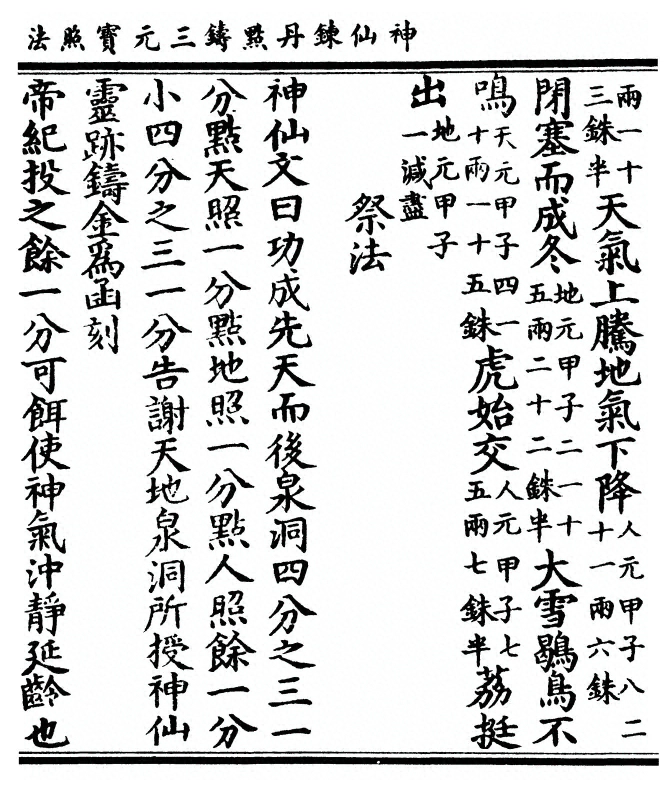 神仙鍊丹點鑄三元寶照法
兩一十三銖半天氣上騰地氣下降人元甲子八二十一兩六銖
閉塞而成冬地元甲子二一十五兩二十二銖半大雪鶡鳥不
鳴天元甲子四一十兩一十五銖虎始交人元甲子七五兩七銖半荔挺
出地元甲子一減盡
祭法
神仙文曰功成先天而後泉洞四分之三一
分點天照一分點地照一分點人照餘一分
小四分之三一分告謝天地泉洞所授神仙
靈跡鑄金爲函刻
帝紀投之餘一分可餌使神氣沖靜延齡也